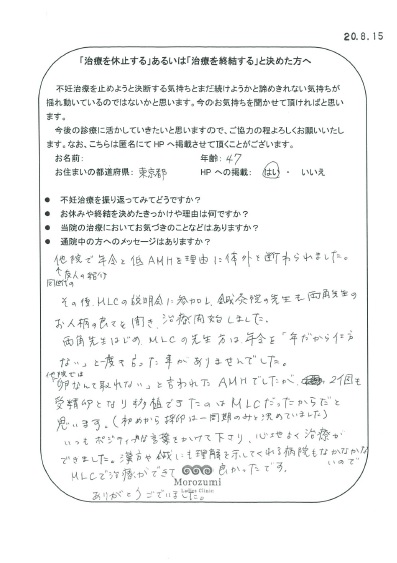 20.8.15
「治療を休止する」あるいは「治療を終結する」と決めた方へ
不妊治療を止めようと決断する気持ちとまだ続けようかと諦めきれない気持ちが
揺れ動いているのではないかと思います。今のお気持ちを聞かせて頂ければと思い
ます。
今後の診療に活かしていきたいと思いますので、ご協力の程よろしくお願いいたし
ます。なお、こちらは匿名にて HP へ掲載させて頂くことがございます。
お名前: 年齢: 47
お住まいの都道府県: 東京都 HP への掲載: はい ・ いいえ
● 不妊治療を振り返ってみてどうですか?
● お休みや終結を決めたきっかけや理由は何ですか?
● 当院の治療においてお気づきのことなどはありますか?
● 通院中の方へのメッセージはありますか?
他院で年令と低AMHを理由に体外と断わられました。
↑友人の紹介
同団体の
その後、MLCの説明会に参加し、鍼灸院の先生も両角先生の
お人柄の良さを聞き、治療開始しました。
両角先生はじめ、MLCの先生方は年令を「年だから仕方
ない」と一度も言った事がありませんでした。
他院では
「卵なんて取れない」と言われたAMHでしたが、2個も
受精卵となり移植できたのはMLCだったからだと
思います。(初めから採卵は一周期のみと決めていました)
いつもポジティブな言葉をかけて下さり、心地よく治療が
できました。漢方や鍼にも理解を示してくれる病院もなかなかな
いので
MLCで治療ができて良かったです。
Morozumi
Ladies Clinic
ありがとうございました。